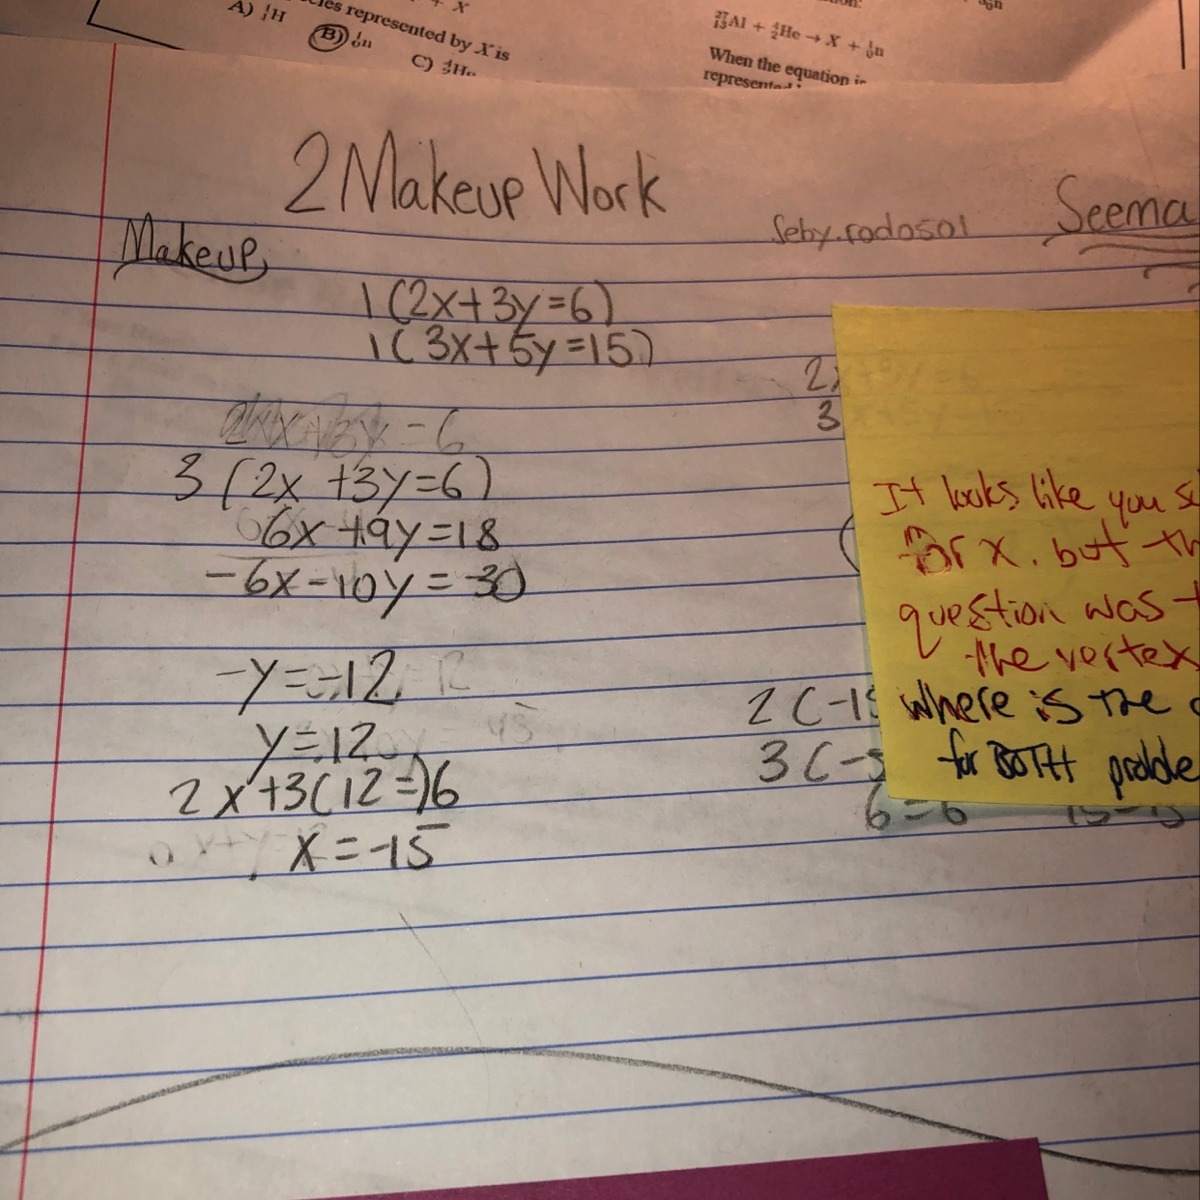 + X
represented by X is
A) ¹₁H
B) ¹₀n
C) ⁴₂He
²⁷₁₃Al + ⁴₂He → X + ¹₀n
When the equation is
2 Makeup Work
Seby.rodosol
Seema
Makeup
1(2x+3y=6)
1(3x+5y=15)
2x+3y=6
3
3(2x+3y=6)
6x+9y=18
-6x-10y=-30
-y=-12
y=12
2x+3(12=)6
x=-15
2(-15
3(-
6=6
It looks like you
for x. but
question was
the vertex
where is the
for BOTH